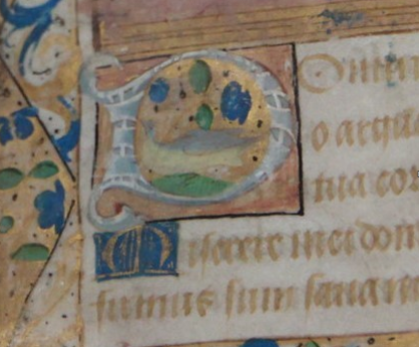 DOmine
o argua
tua cor
Miserere mei domi
firmus sum sana me